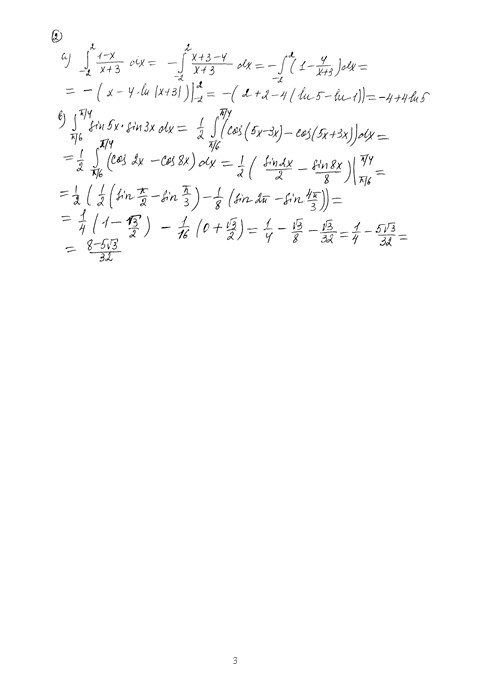 ②
а) ∫_{-2}^{2} (1-x)/(x+3) dx = -∫_{-2}^{2} (x+3-4)/(x+3) dx = -∫_{-2}^{2} (1 - 4/(x+3)) dx =
= -(x - 4·ln|x+3|)|_{-2}^{2} = -(2+2-4(ln5-ln1)) = -4+4ln5
б) ∫_{π/6}^{π/4} sin5x·sin3x dx = 1/2 ∫_{π/6}^{π/4} (cos(5x-3x) - cos(5x+3x)) dx =
= 1/2 ∫_{π/6}^{π/4} (cos 2x - cos 8x) dx = 1/2 (sin2x/2 - sin8x/8)|_{π/6}^{π/4} =
= 1/2 (1/2 (sin π/2 - sin π/3) - 1/8 (sin 2π - sin 4π/3)) =
= 1/4 (1 - √3/2) - 1/16 (0 + √3/2) = 1/4 - √3/8 - √3/32 = 1/4 - 5√3/32 =
= (8-5√3)/32
3